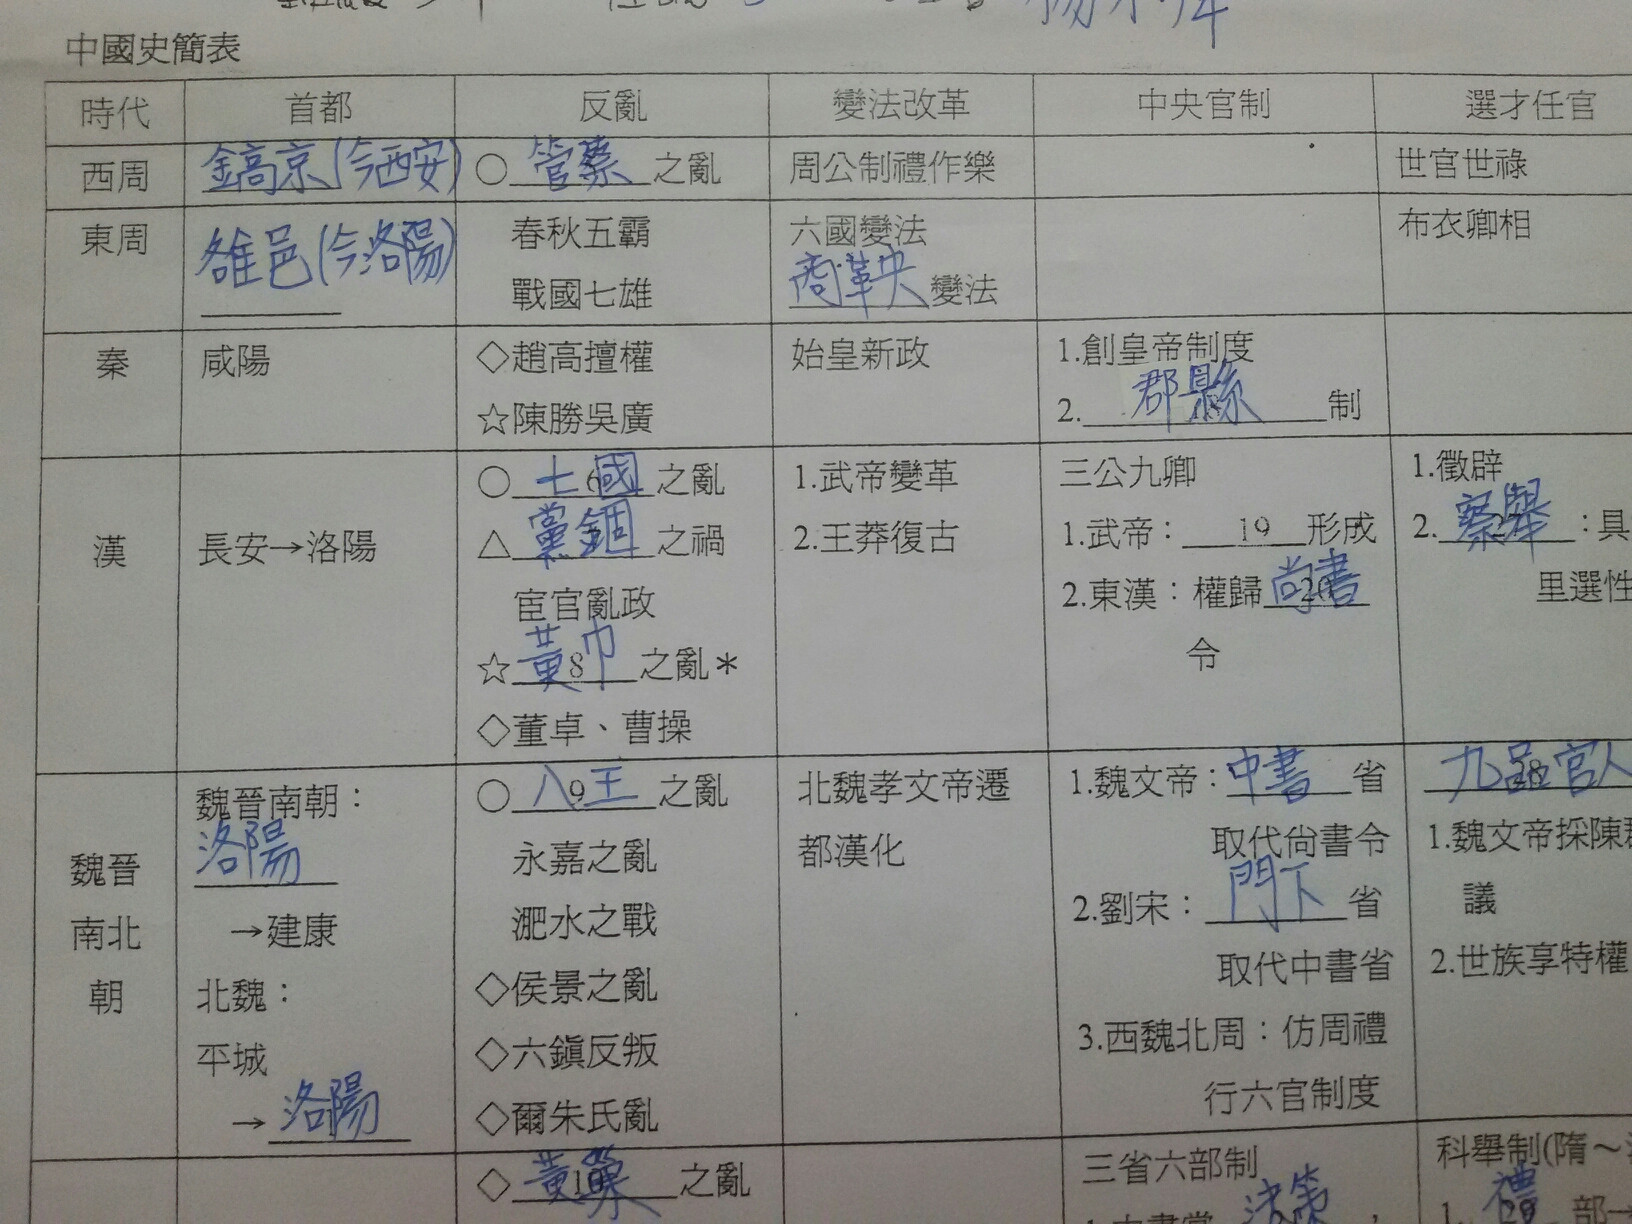 中國史簡表
時代 首都 反亂 變法改革 中央官制 選才任官
西周 鎬京(今西安) ○管蔡之亂 周公制禮作樂 世官世祿
東周 雒邑(今洛陽) 春秋五霸 六國變法 布衣卿相
戰國七雄 商鞅變法
秦 咸陽 ◇趙高擅權 始皇新政 1.創皇帝制度
☆陳勝吳廣 2.郡縣制
漢 長安→洛陽 ○七國之亂 1.武帝變革 三公九卿 1.徵辟
△黨錮之禍 2.王莽復古 1.武帝：19形成 2.察舉：具
宦官亂政 2.東漢：權歸尚書 里選性
☆黃巾8之亂＊ 令
◇董卓、曹操
魏晉南北朝 魏晉南朝： ○八9王之亂 北魏孝文帝遷 1.魏文帝：中書省 九品官人
洛陽 永嘉之亂 都漢化 取代尚書令 1.魏文帝採陳
→建康 淝水之戰 2.劉宋：門下省 議
北魏： ◇侯景之亂 取代中書省 2.世族享特權
平城 ◇六鎮反叛 3.西魏北周：仿周禮
→洛陽 ◇爾朱氏亂 行六官制度
◇黃巢之亂 三省六部制 科舉制(隋～
決策 1.禮部